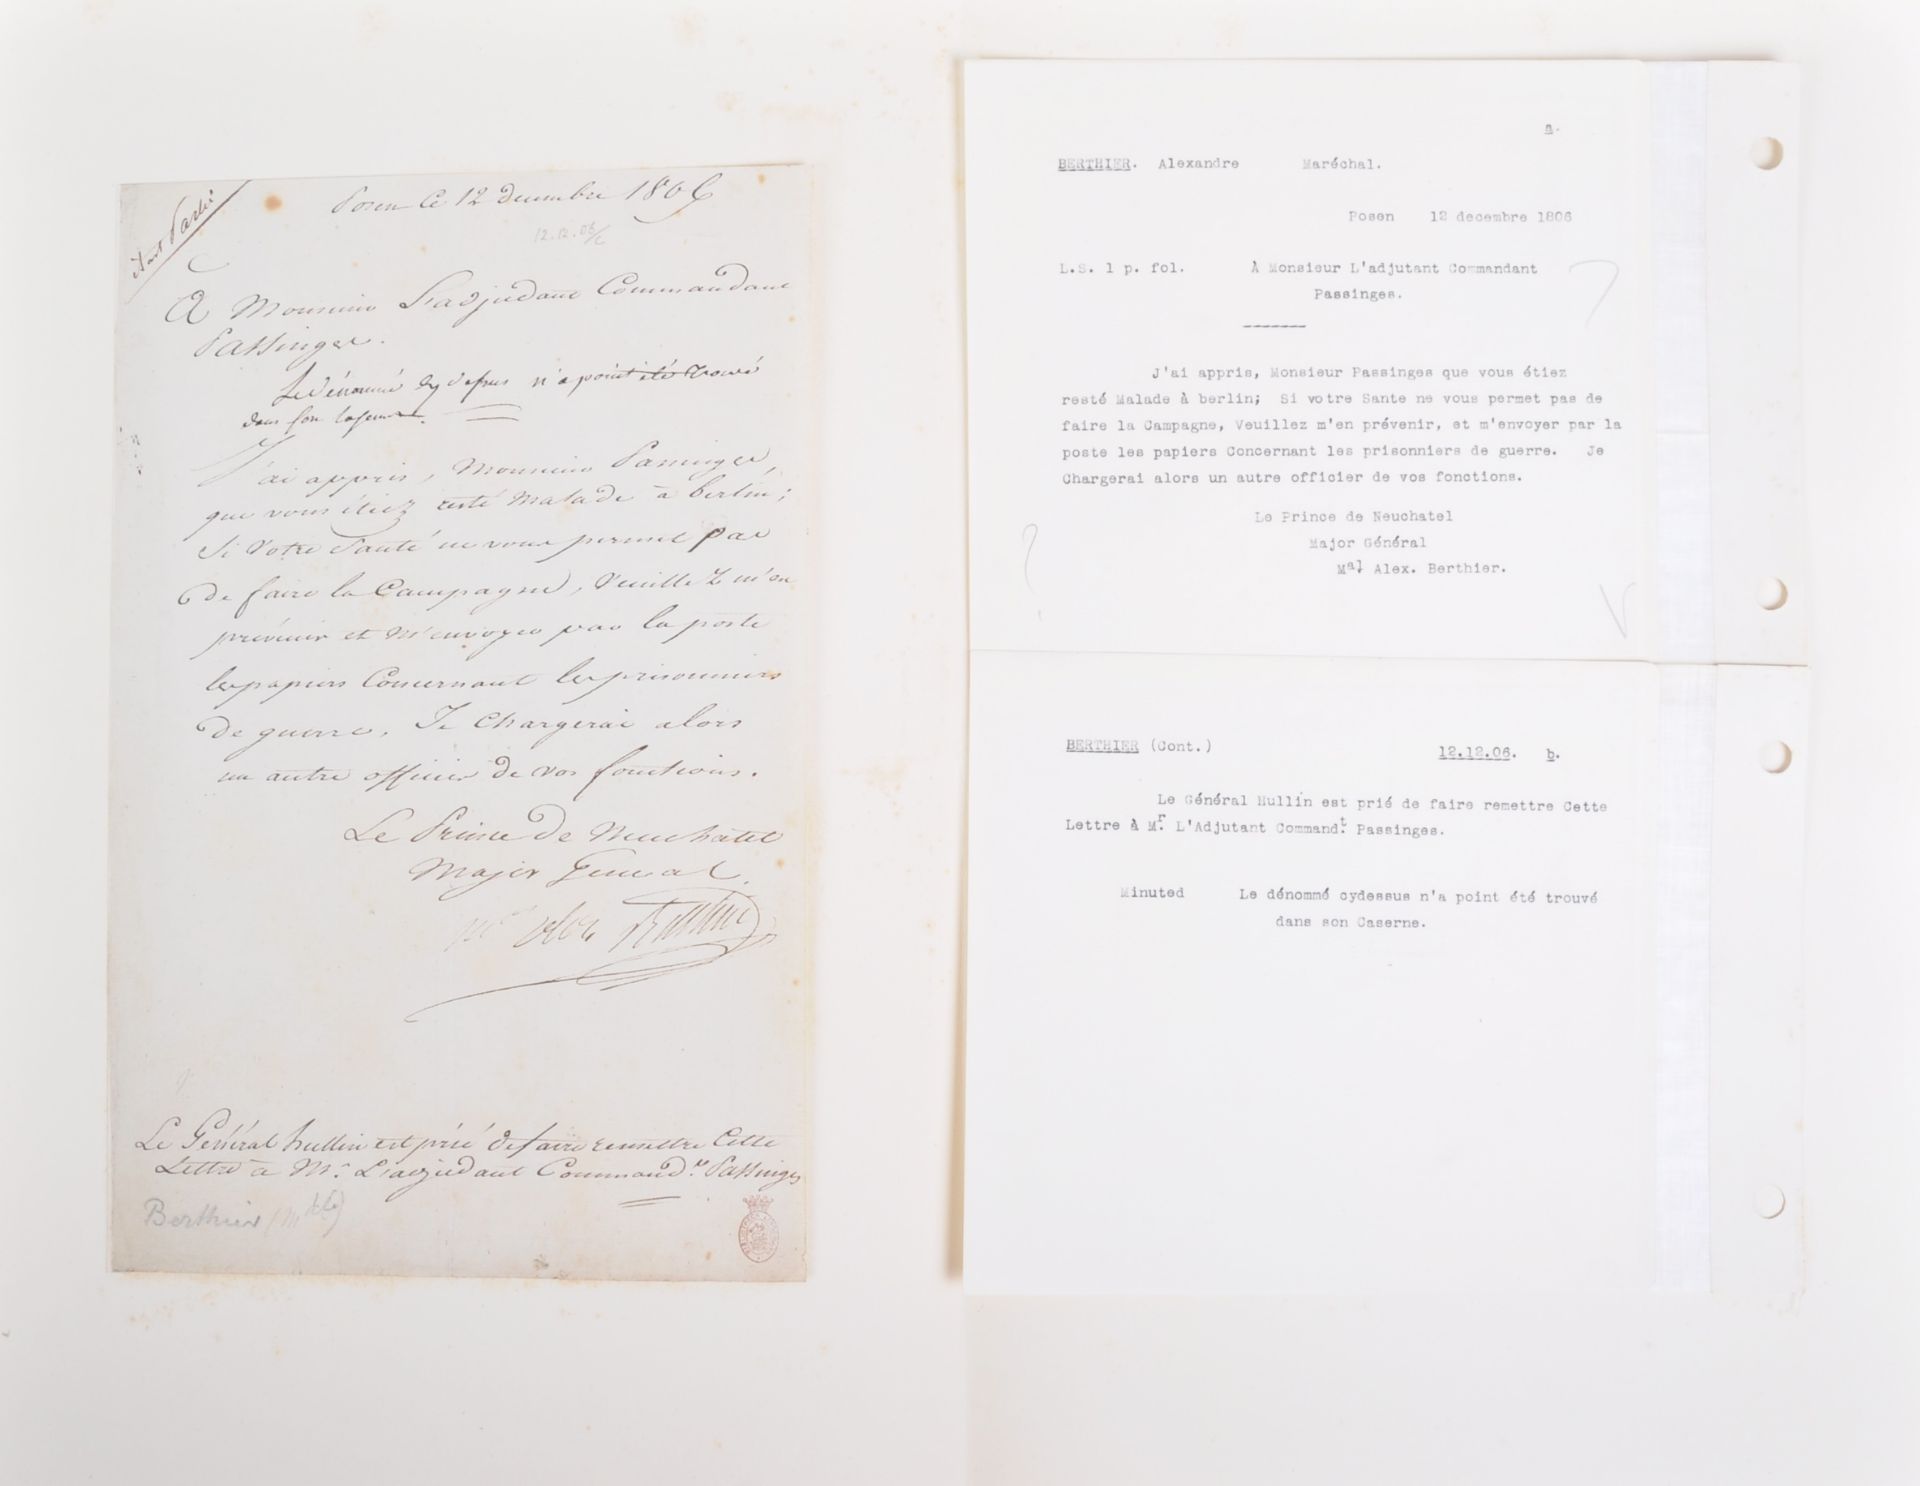 était Parti
Posen le 12 decembre 1806
12.12.06/c
A Monsieur L'adjudant Commandant
Passinges.
Le dénommé cydessus n'a point été trouvé
dans son
J'ai appris, Monsieur Passinges,
que vous étiez resté Malade à berlin;
Si Votre Santé ne vous permet pas
de faire la Campagne, Veuillez m'en
prévenir et m'envoyer par la poste
les papiers Concernant les prisonniers
de guerre, Je Chargerai alors
un autre officier de vos fonctions.
Le Prince de Neuchatel
Major General.
Mal Alex Berthier
Le Général hullin est prié de faire remettre Cette
Lettre à Mr. L'adjudant Command.t Passinges
Berthier
a.
BERTHIER. Alexandre Maréchal.
Posen 12 decembre 1806
L.S. 1 p. fol. À Monsieur L'adjutant Commandant
Passinges.
J'ai appris, Monsieur Passinges que vous étiez
resté Malade à berlin; Si votre Sante ne vous permet pas de
faire la Campagne, Veuillez m'en prévenir, et m'envoyer par la
poste les papiers Concernant les prisonniers de guerre. Je
Chargerai alors un autre officier de vos fonctions.
Le Prince de Neuchatel
Major Général
Mal Alex. Berthier.
BERTHIER (Cont.) 12.12.06. b.
Le Général Hullin est prié de faire remettre Cette
Lettre à Mr. L'Adjutant Command.t Passinges.
Minuted Le dénommé cydessus n'a point été trouvé
dans son Caserne.